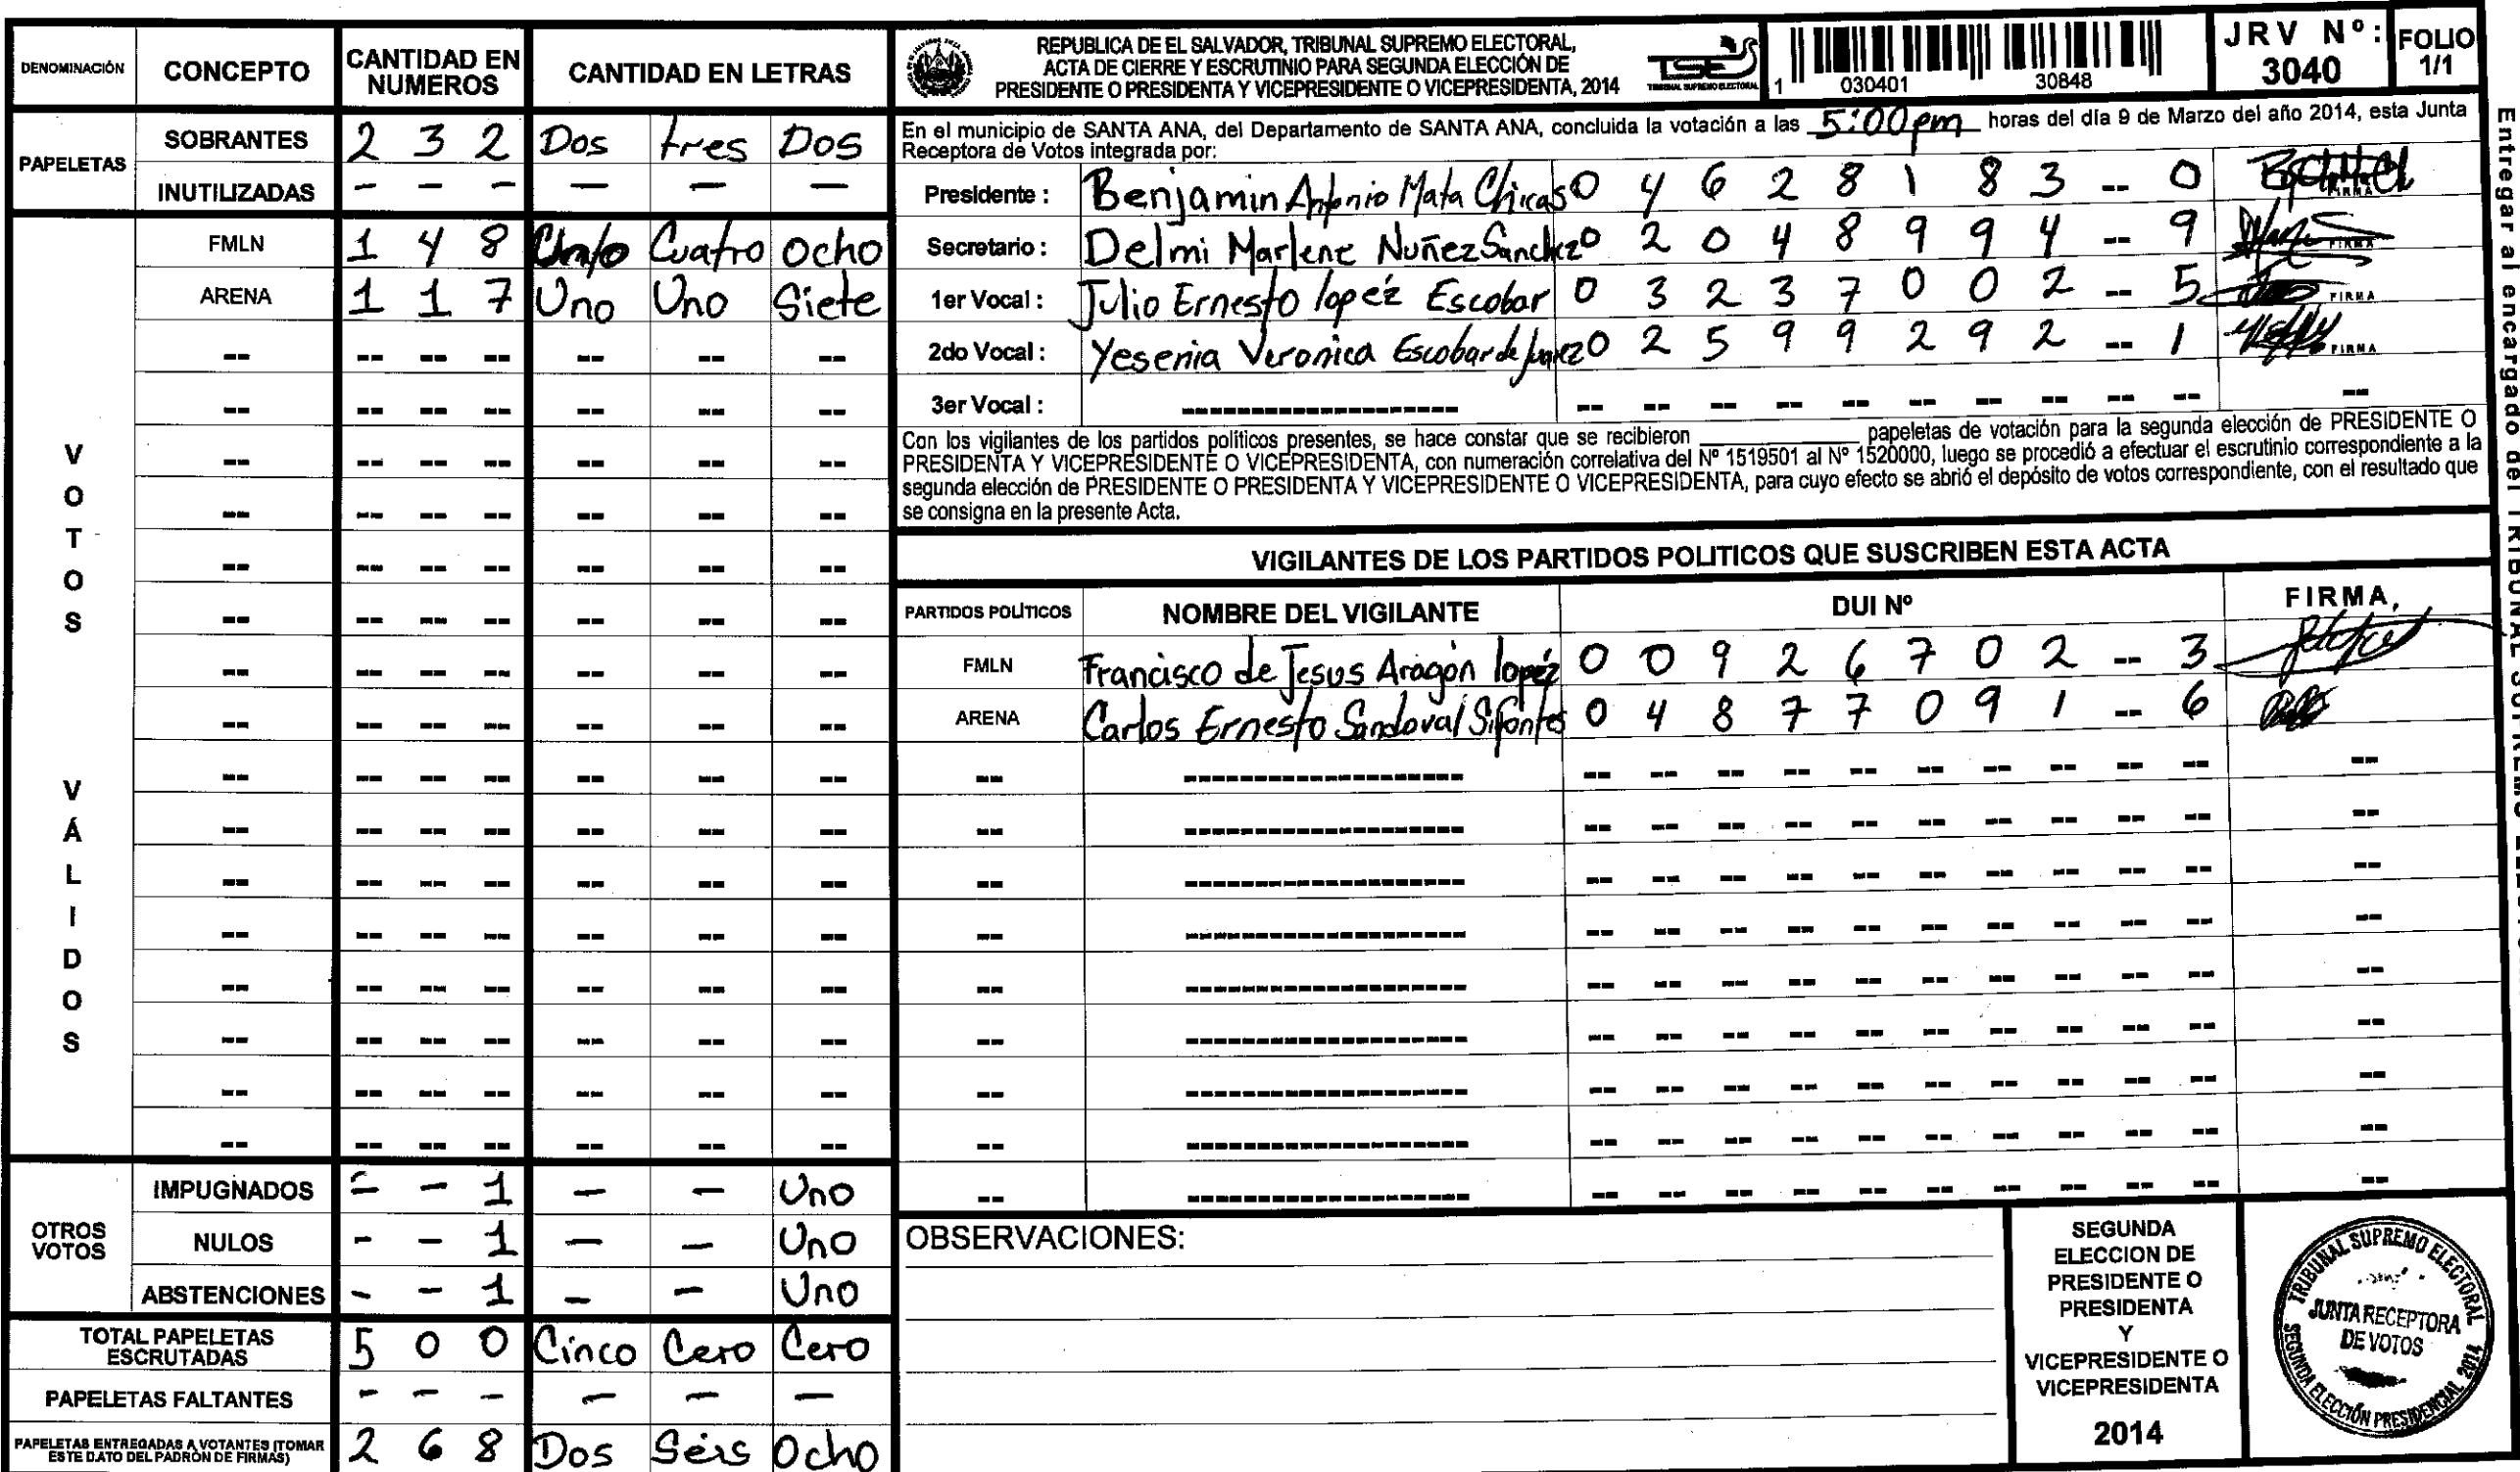 DENOMINACIÓN CONCEPTO CANTIDAD EN NUMEROS CANTIDAD EN LETRAS
PAPELETAS
SOBRANTES 2 3 2 Dos tres Dos
INUTILIZADAS - - - - - -
VOTOS VÁLIDOS
FMLN 1 4 8 Cuatro Ocho
ARENA 1 1 7 Uno Uno Siete
OTROS VOTOS
IMPUGNADOS - - 1 - - Uno
NULOS - - 1 - - Uno
ABSTENCIONES - - 1 - - Uno
TOTAL PAPELETAS ESCRUTADAS 5 0 0 Cinco Cero Cero
PAPELETAS FALTANTES - - - - - -
PAPELETAS ENTREGADAS A VOTANTES (TOMAR ESTE DATO DEL PADRÓN DE FIRMAS) 2 6 8 Dos Seis Ocho
REPUBLICA DE EL SALVADOR, TRIBUNAL SUPREMO ELECTORAL,
ACTA DE CIERRE Y ESCRUTINIO PARA SEGUNDA ELECCIÓN DE
PRESIDENTE O PRESIDENTA Y VICEPRESIDENTE O VICEPRESIDENTA, 2014
TSE
TRIBUNAL SUPREMO ELECTORAL
1 030401 30848
JRV Nº: 3040
FOLIO 1/1
En el municipio de SANTA ANA, del Departamento de SANTA ANA, concluida la votación a las 5:00 pm horas del día 9 de Marzo del año 2014, esta Junta
Receptora de Votos integrada por:
Presidente : Benjamin Antonio Mata Chicas 0 4 6 2 8 1 8 3 -- 0 FIRMA
Secretario : Delmi Marlene Nuñez Sanchez 0 2 0 4 8 9 9 4 -- 9 FIRMA
1er Vocal : Julio Ernesto lopéz Escobar 0 3 2 3 7 0 0 2 -- 5 FIRMA
2do Vocal : Yesenia Veronica Escobar de 0 2 5 9 9 2 9 2 -- 1 FIRMA
3er Vocal : --------------------
Con los vigilantes de los partidos políticos presentes, se hace constar que se recibieron ____________ papeletas de votación para la segunda elección de PRESIDENTE O
PRESIDENTA Y VICEPRESIDENTE O VICEPRESIDENTA, con numeración correlativa del Nº 1519501 al Nº 1520000, luego se procedió a efectuar el escrutinio correspondiente a la
segunda elección de PRESIDENTE O PRESIDENTA Y VICEPRESIDENTE O VICEPRESIDENTA, para cuyo efecto se abrió el depósito de votos correspondiente, con el resultado que
se consigna en la presente Acta.
VIGILANTES DE LOS PARTIDOS POLITICOS QUE SUSCRIBEN ESTA ACTA
PARTIDOS POLÍTICOS NOMBRE DEL VIGILANTE DUI Nº FIRMA,
FMLN Francisco de Jesus Aragón lopéz 0 0 9 2 6 7 0 2 -- 3
ARENA Carlos Ernesto Sandoval Sifontes 0 4 8 7 7 0 9 1 -- 6
OBSERVACIONES:
SEGUNDA
ELECCION DE
PRESIDENTE O
PRESIDENTA
Y
VICEPRESIDENTE O
VICEPRESIDENTA
2014
TRIBUNAL SUPREMO ELECTORAL
JUNTA RECEPTORA
DE VOTOS
SEGUNDA ELECCIÓN PRESIDENCIAL 2014
Entregar al encargado del TRIBUNAL SUPREMO